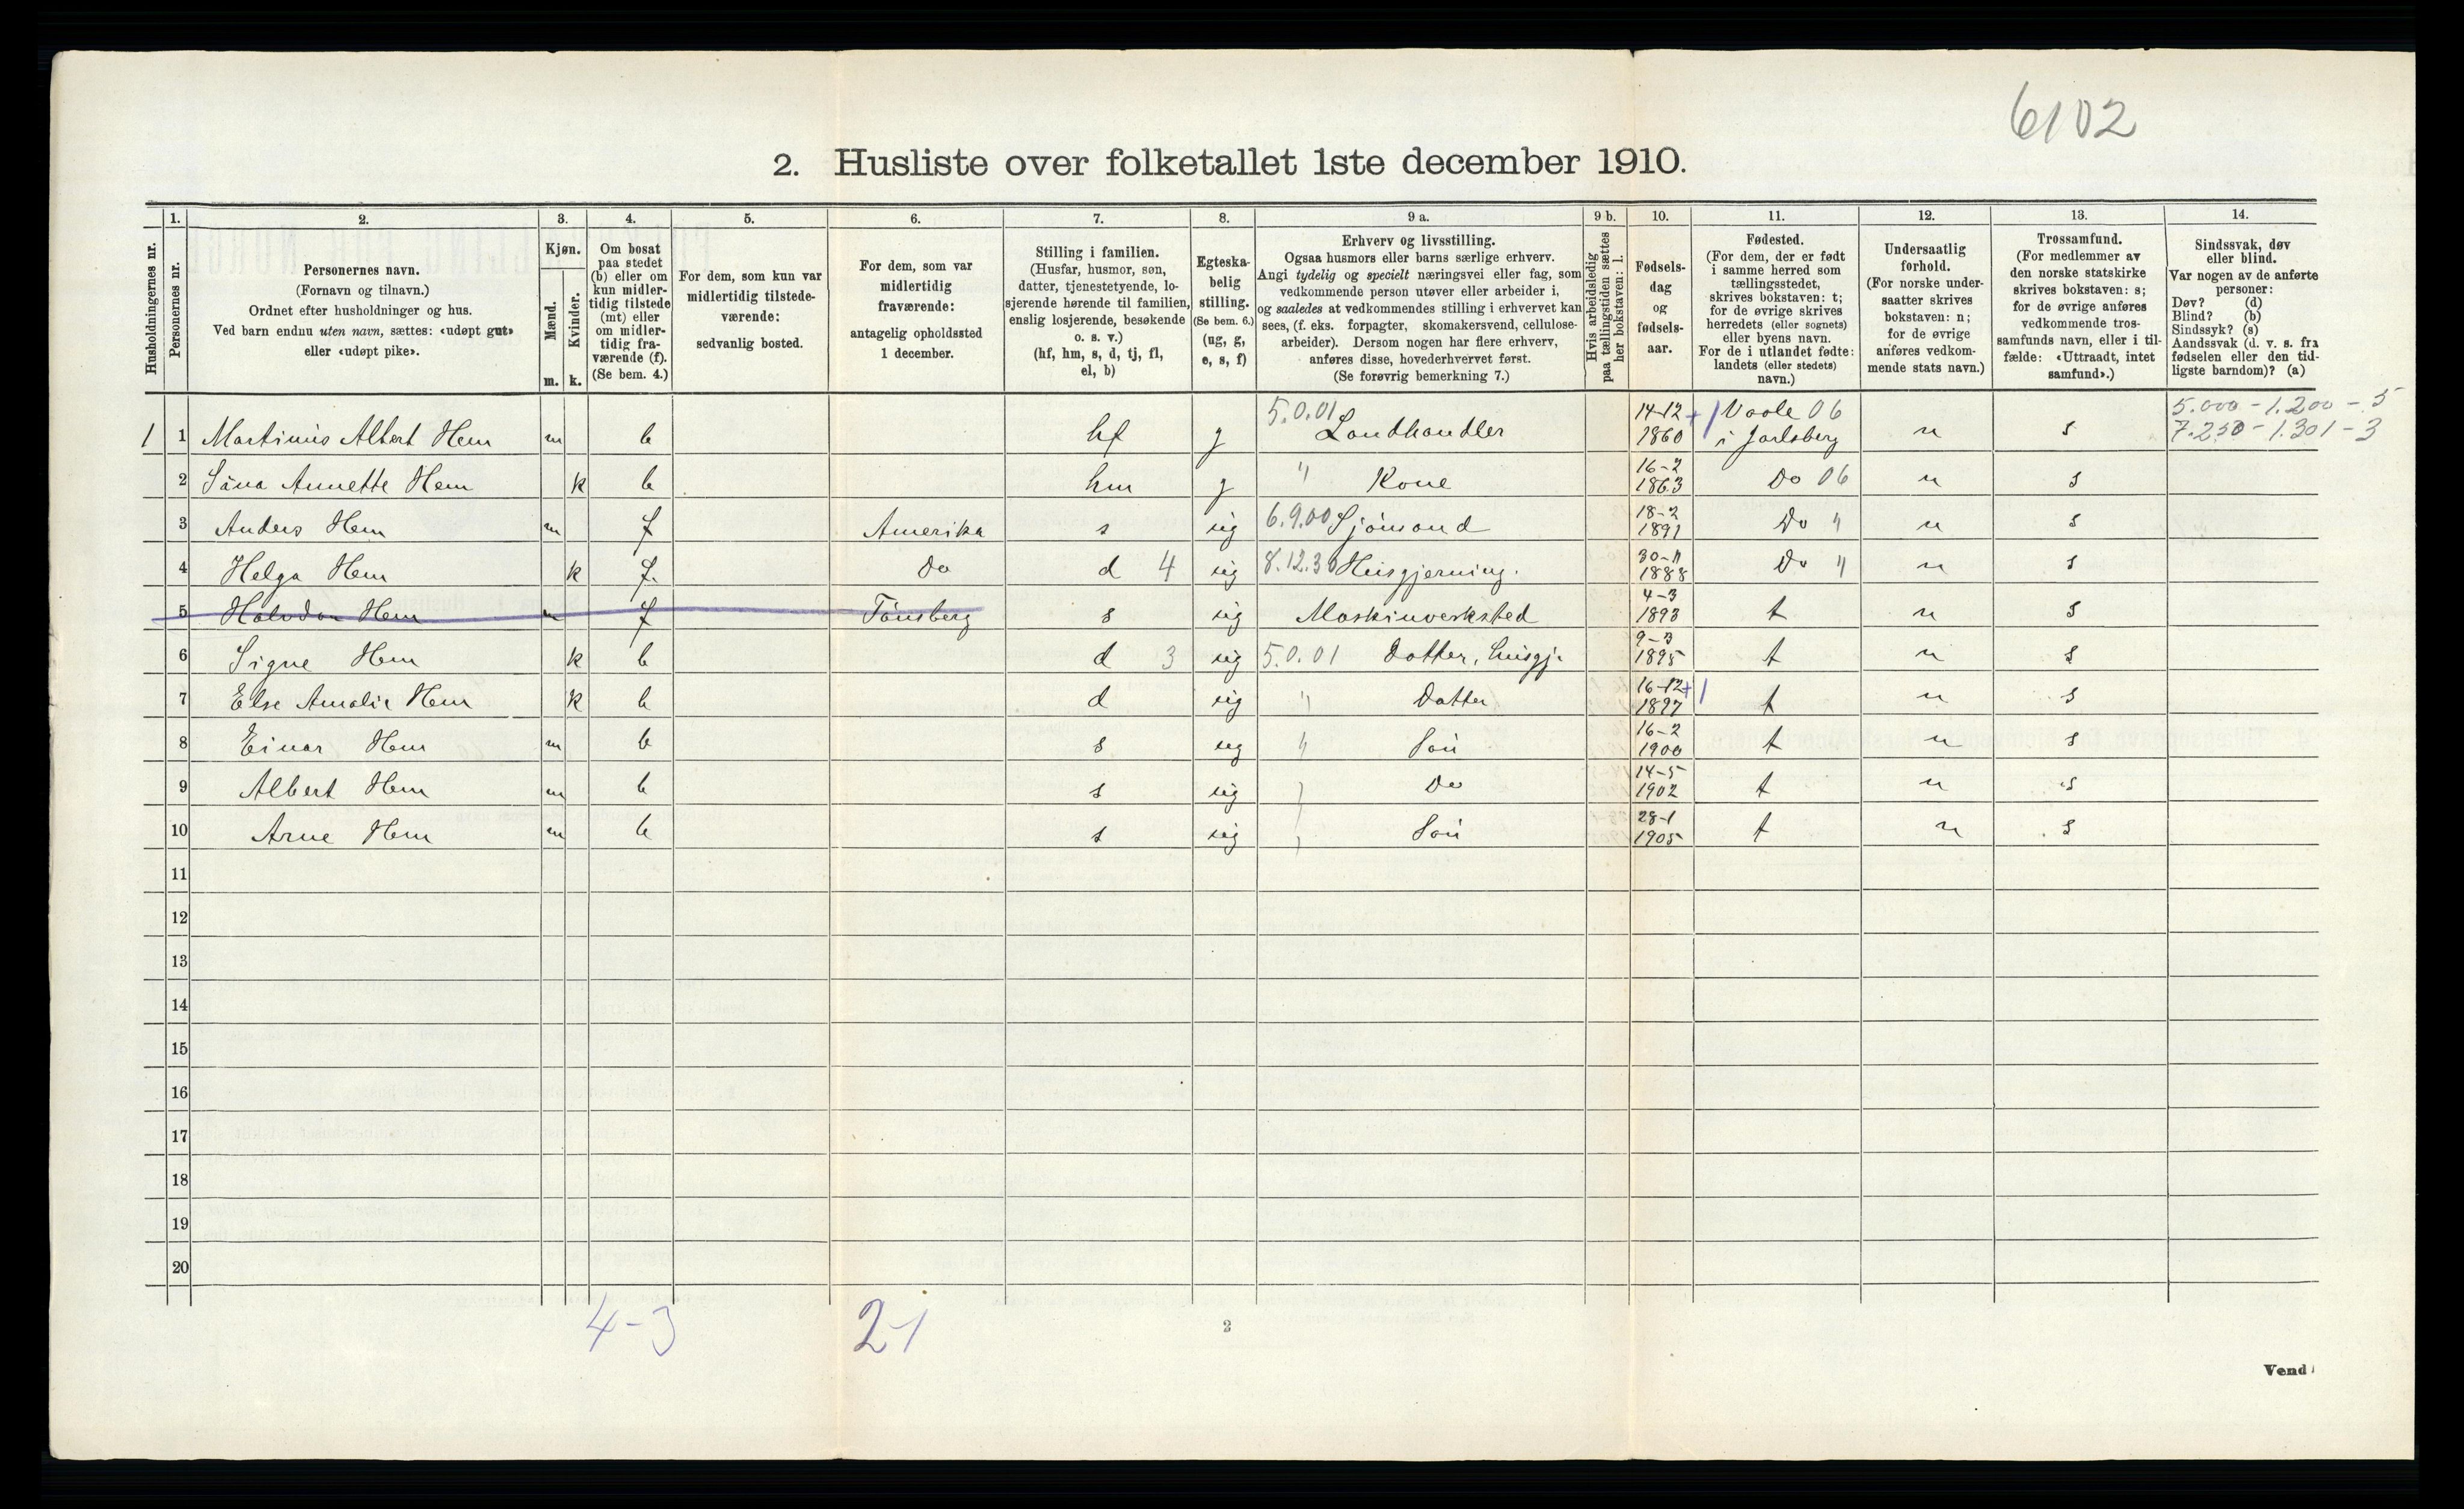 6102
2. Husliste over folketallet 1ste december 1910.
Husholdningernes nr.
1. Personernes nr.
2. Personernes navn.
(Fornavn og tilnavn.)
Ordnet efter husholdninger og hus.
Ved barn endnu uten navn, sættes: «udøpt gut»
eller «udøpt pike».
3. Kjøn.
Mænd. m.
Kvinder. k.
4. Om bosat
paa stedet
(b) eller om
kun midler-
tidig tilstede
(mt) eller
om midler-
tidig fra-
værende (f).
(Se bem. 4.)
5. For dem, som kun var
midlertidig tilstede-
værende:
sedvanlig bosted.
6. For dem, som var
midlertidig
fraværende:
antagelig opholdssted
1 december.
7. Stilling i familien.
(Husfar, husmor, søn,
datter, tjenestetyende, lo-
sjerende hørende til familien,
enslig losjerende, besøkende
o. s. v.)
(hf, hm, s, d, tj, fl,
el, b)
8. Egteska-
belig
stilling.
(Se bem. 6.)
(ug, g,
e, s, f)
9 a. Erhverv og livsstilling.
Ogsaa husmors eller barns særlige erhverv.
Angi tydelig og specielt næringsvei eller fag, som
vedkommende person utøver eller arbeider i,
og saaledes at vedkommendes stilling i erhvervet kan
sees, (f. eks. forpagter, skomakersvend, cellulose-
arbeider). Dersom nogen har flere erhverv,
anføres disse, hovederhvervet først.
(Se forøvrig bemerkning 7.)
9 b. Hvis arbeidsledig
paa tællingstiden sættes
her bokstaven: l.
10. Fødsels-
dag
og
fødsels-
aar.
11. Fødested.
(For dem, der er født
i samme herred som
tællingsstedet,
skrives bokstaven: t;
for de øvrige skrives
herredets (eller sognets)
eller byens navn.
For de i utlandet fødte:
landets (eller stedets)
navn.)
12. Undersaatlig
forhold.
(For norske under-
saatter skrives
bokstaven: n;
for de øvrige
anføres vedkom-
mende stats navn.)
13. Trossamfund.
(For medlemmer av
den norske statskirke
skrives bokstaven: s;
for de øvrige anføres
vedkommende tros-
samfunds navn, eller i til-
fælde: «Uttraadt, intet
samfund».)
14. Sindssvak, døv
eller blind.
Var nogen av de anførte
personer:
Døv? (d)
Blind? (b)
Sindssyk? (s)
Aandssvak (d. v. s. fra
fødselen eller den tid-
ligste barndom)? (a)
1 1 Martinius Albert Hem m b hf g 5.0.01 Landhandler 14-12 1860 +1 Vaale 06 i Jarlsberg n s 5.000 - 1.200 - 5
7.250 - 1.301 - 3
2 Annette Hem k b hm g " Kone 16-2 1863 Do 06 n s
3 Anders Hem m f Amerika s ug 6.9.00 Sjømand 18-2 1891 Do " n s
4 Helga Hem k f. Do d 4 ug 8.12.30 Husgjerning. 30-11 1888 Do " n s
5 Halvdan Hem m f Tønsberg s ug Maskinverksted 4-3 1893 t n s
6 Signe Hem k b d 3 ug 5.0.01 Datter, husgj. 9-3 1895 t n s
7 Else Amalie Hem k b d ug " Datter 16-12 1897 +1 t n s
8 Einar Hem m b s ug " Søn 16-2 1900 t n s
9 Albert Hem m b s ug " Do 14-5 1902 t n s
10 Arne Hem m b s ug " Søn 28-1 1905 t n s
11
12
13
14
15
16
17
18
19
20
4-3 2-1
2
Vend